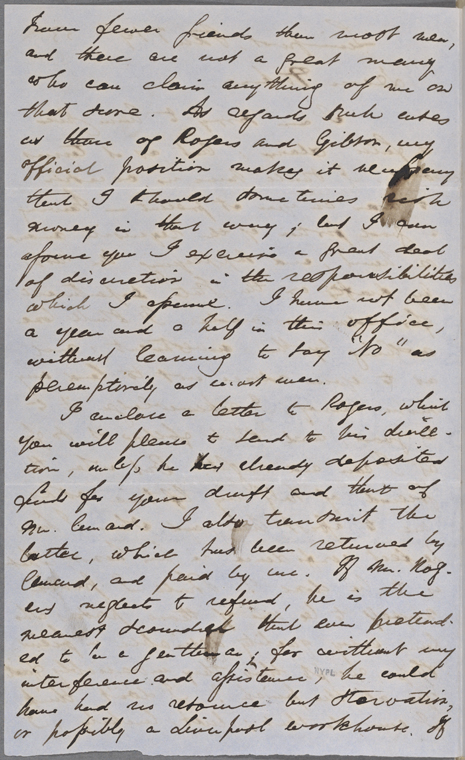 I have fewer friends than most men,
and there are not a great many
who can claim anything of me on
that score. As regards such cases
as those of Rogers and Gibson, my
official position makes it necessary
that I should sometimes risk
money in that way; but I can
assure you I exercise a great deal
of discretion in the responsibilities
which I assume. I have not been
a year and a half in this office,
without learning to say "No" as
peremptorily as most men.
I enclose a letter to Rogers, which
you will please to send to his direc-
tion, unless he has already deposited
funds for your draft and that of
Mr. Cunard. I also transmit the
latter, which has been returned by
Cunard, and paid by me. If Mr. Rog-
ers neglects to refund, he is the
meanest scoundrel that ever pretend-
ed to be a gentleman; for without my
interference and assistance, he could
have had no resource but starvation,
or possibly a Liverpool workhouse. If
NYPL